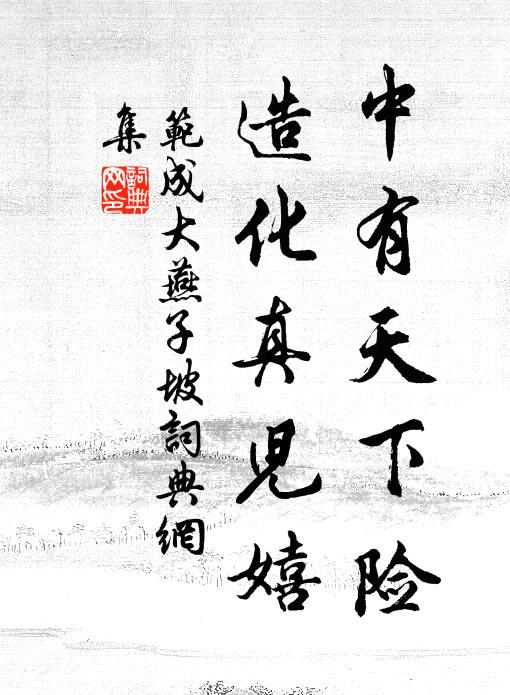 中有天下险
造化真児嬉
範成大燕子坡詞典網
集
詞典
网印